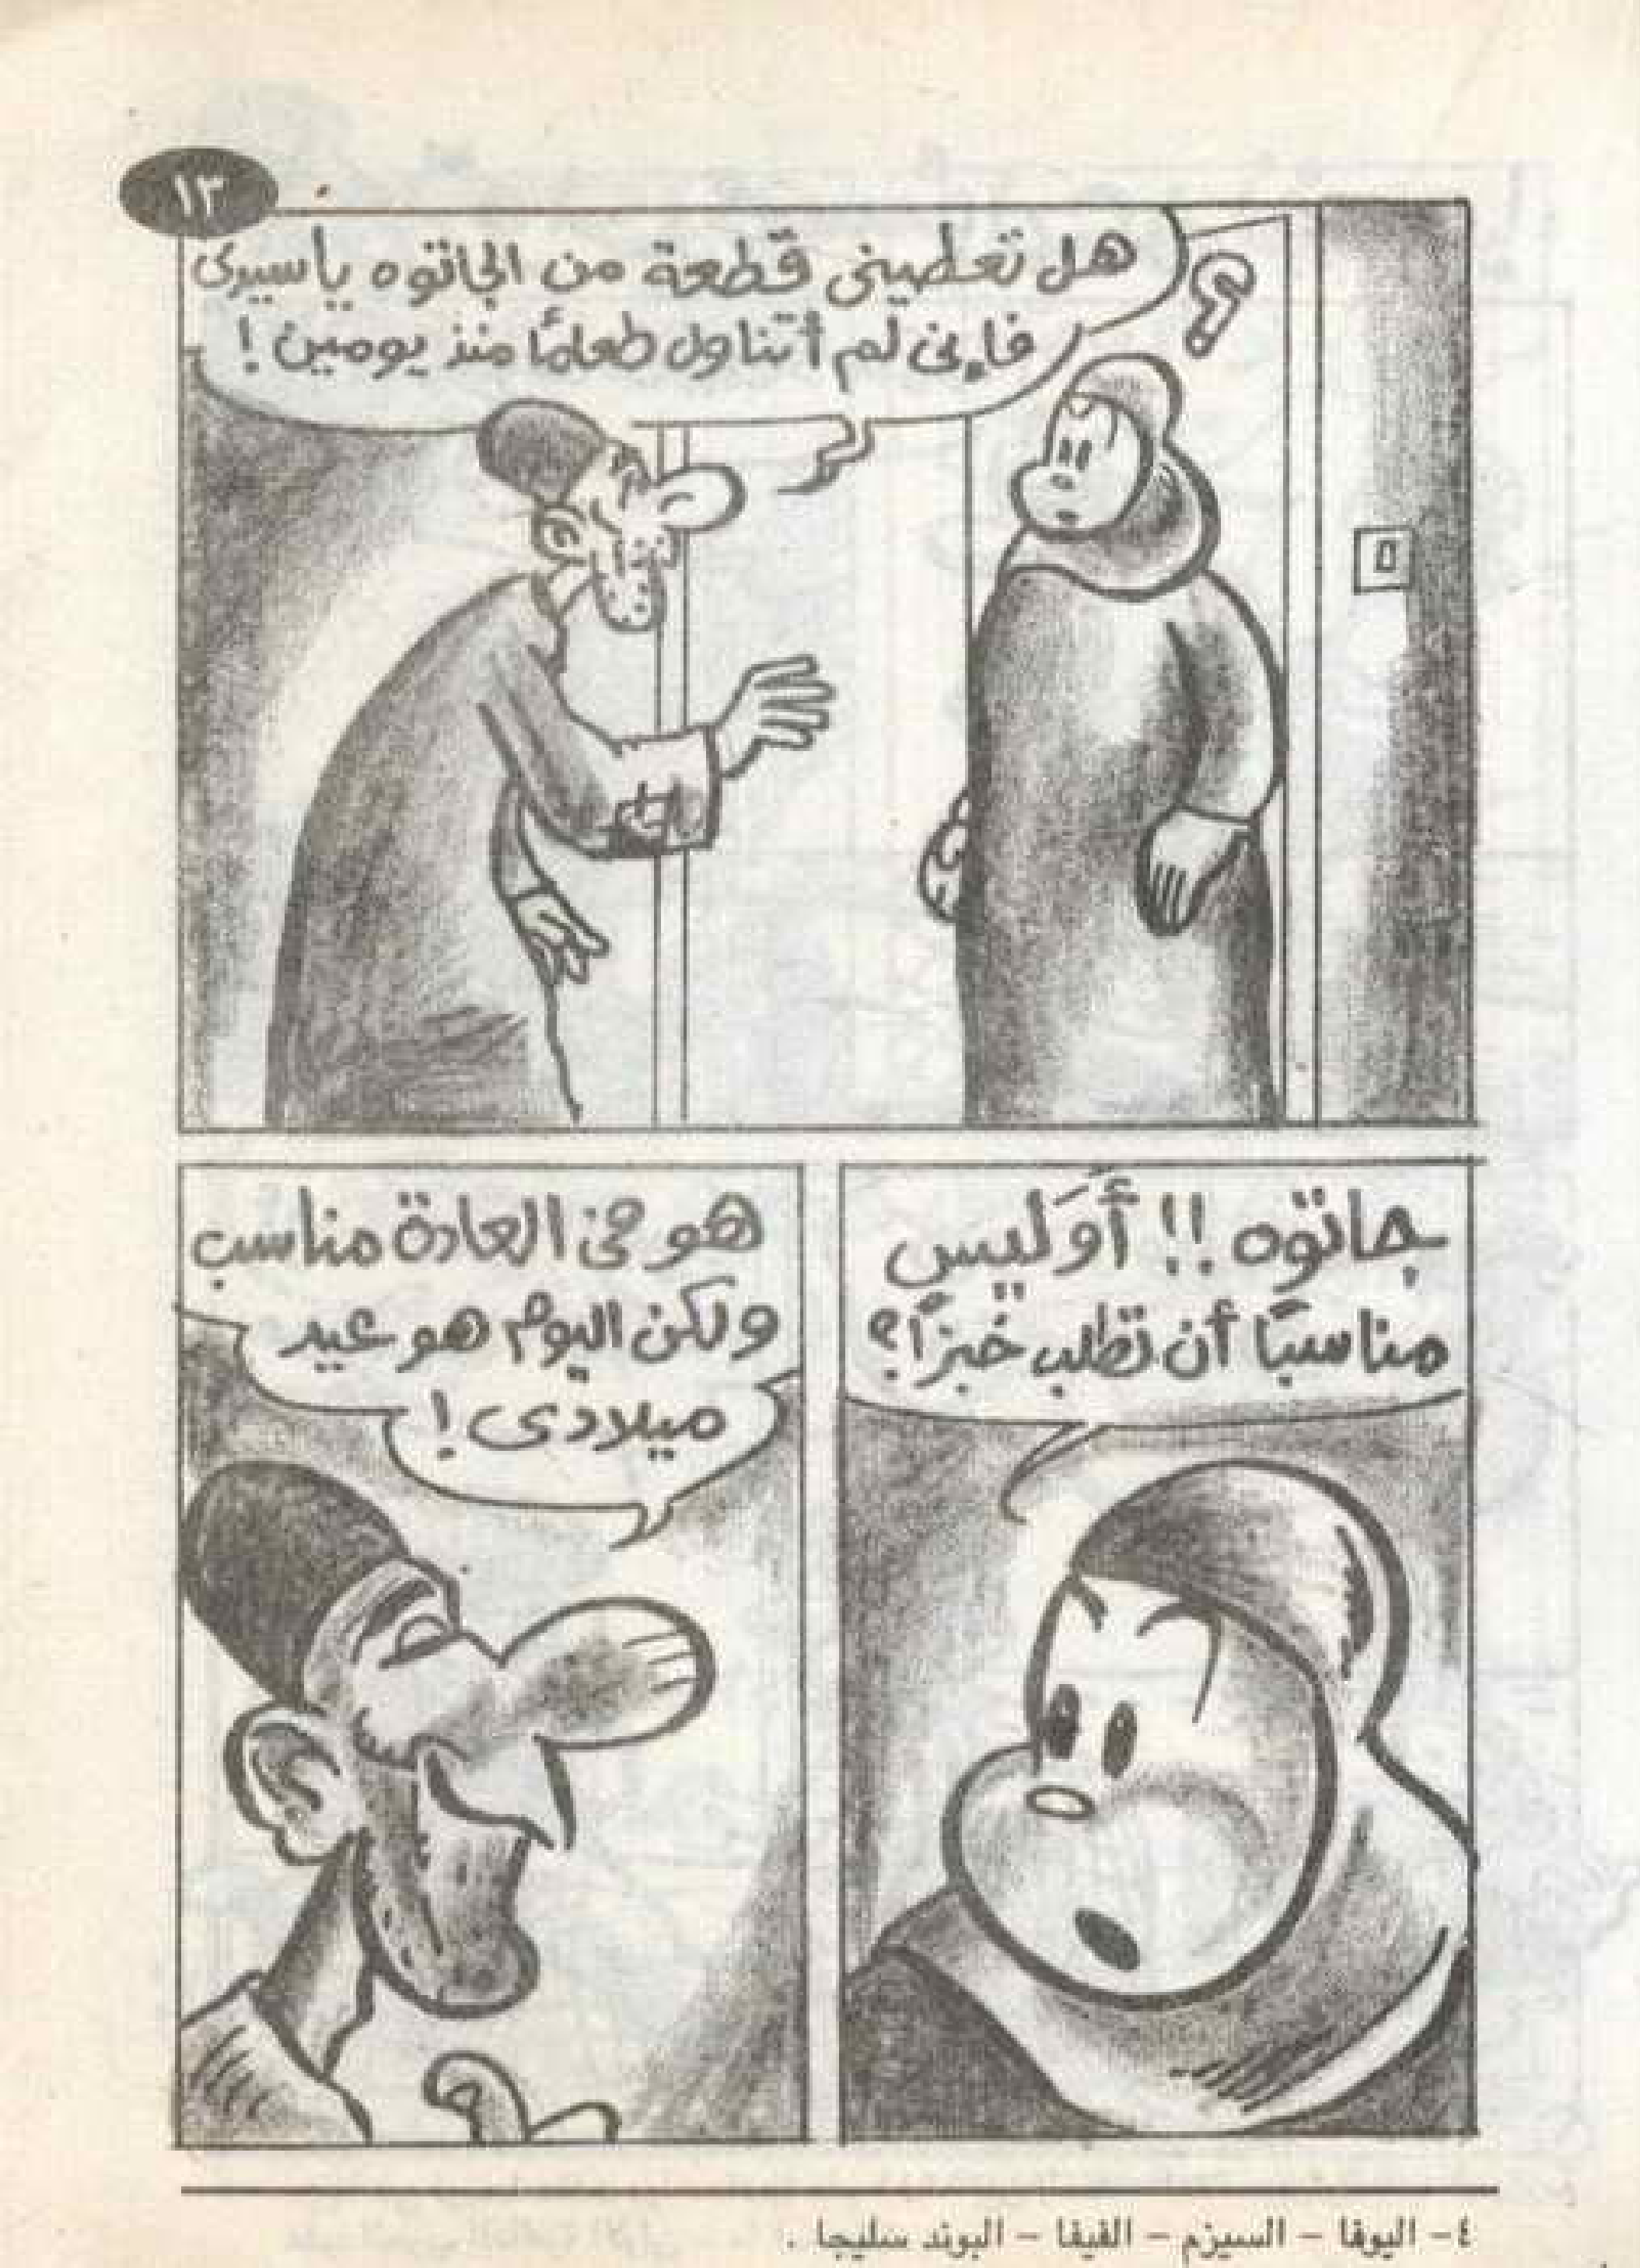 ١٣
هل تعطيني قطعة من الجاتوه يا سيدتي
فإنى لم أتناول طعامًا منذ يومين !
جاتوه !! أَوَليس
مناسبًا أن تطلب خبزًا؟
هو فى العادة مناسب
ولكن اليوم هو عيد
ميلادى !
٤- اليوفا – السيزم – الفيفا – البوند سليجا .